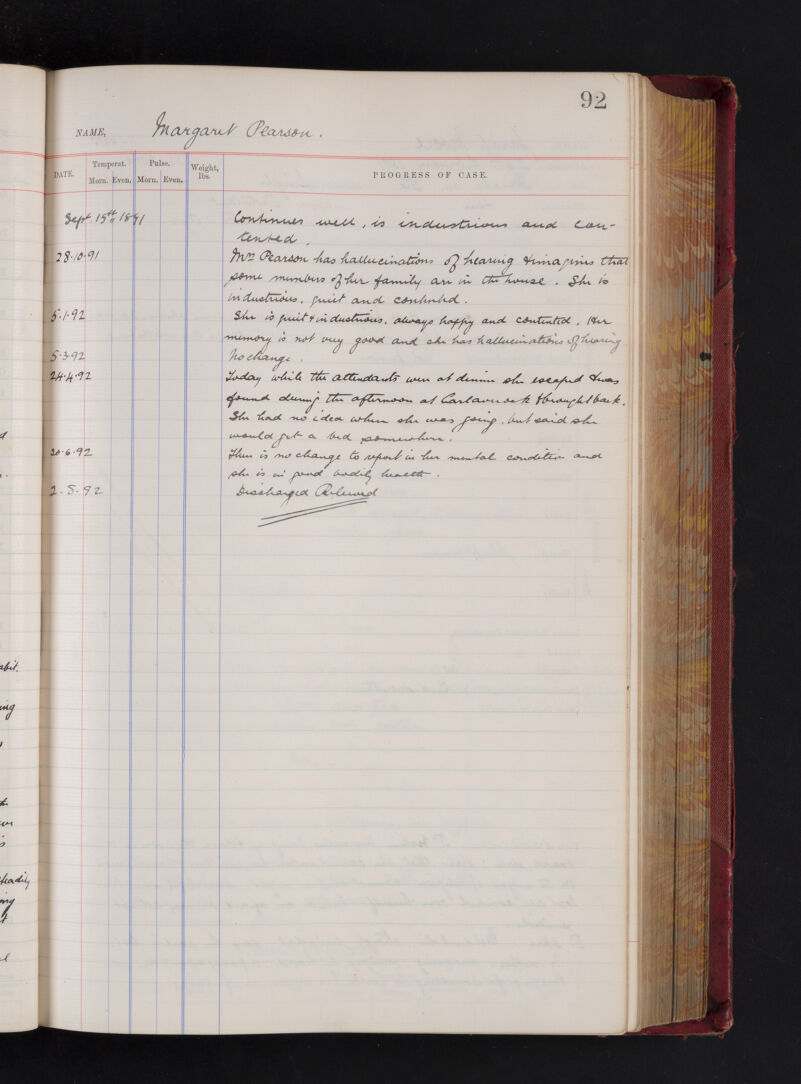 92
NAME, Margaret Pearson.
DATE. Temperat. Pulse. Weight, lbs. PROGRESS OF CASE.
Morn. Even. Morn. Even.
Sept 15th 1891 Continues well, is industrious and con-
tented.
28.10.91 Mrs Pearson has hallucinations of hearing & imagines that
some members of her family are in the house. She is
industrious, quiet and contented.
5.1.92 She is quiet & industrious, always happy and contented. Her
memory is not very good and she has hallucinations of hearing
5.3.92 No change.
24.4.92 Today while the attendants were at dinner she escaped & was
found during the afternoon at Carlaverock & brought back.
She had no idea where she was going, but said she
would get a bed somewhere.
20.6.92 There is no change to report in her mental condition and
she is in good bodily health.
2.8.92 Discharged Relieved
abit.
ing